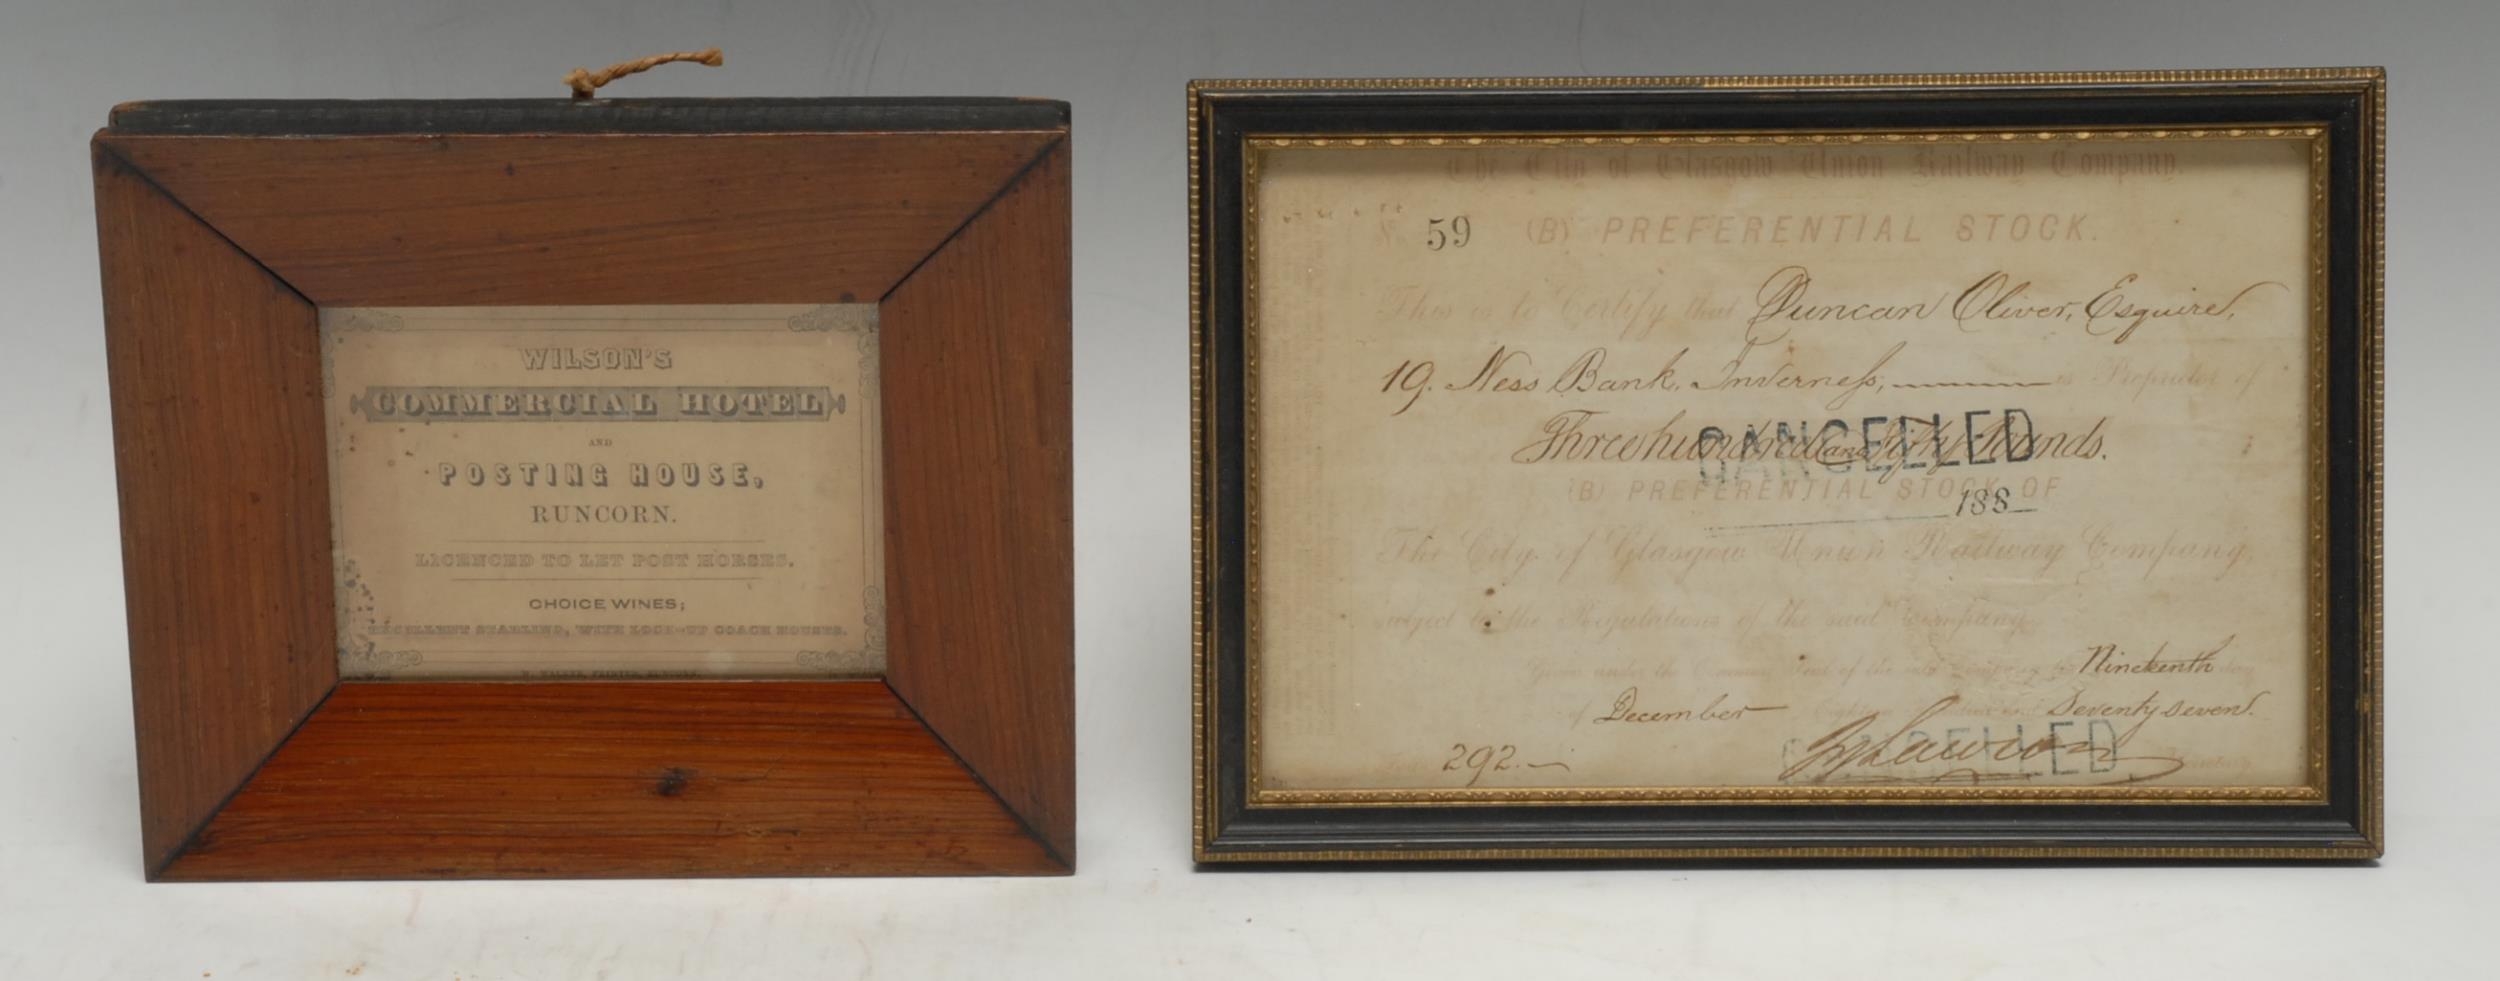 WILSON'S
COMMERCIAL HOTEL
AND
POSTING HOUSE,
RUNCORN.
LICENCED TO LET POST HORSES.
CHOICE WINES;
EXCELLENT STABLING, WITH LOCK-UP COACH HOUSES.
W. WALKER, PRINTER, RUNCORN.
The City of Glasgow Union Railway Company.
59 (B) PREFERENTIAL STOCK.
This is to Certify that Duncan Oliver, Esquire,
19. Ness Bank, Inverness, is Proprietor of
Three hundred and Fifty Pounds.
CANCELLED
(B) PREFERENTIAL STOCK OF
188
The City of Glasgow Union Railway Company,
subject to the Regulations of the said Company.
Given under the Common Seal of the said Company the Nineteenth day
of December Eighteen Hundred and Seventy seven.
CANCELLED
292. Secretary